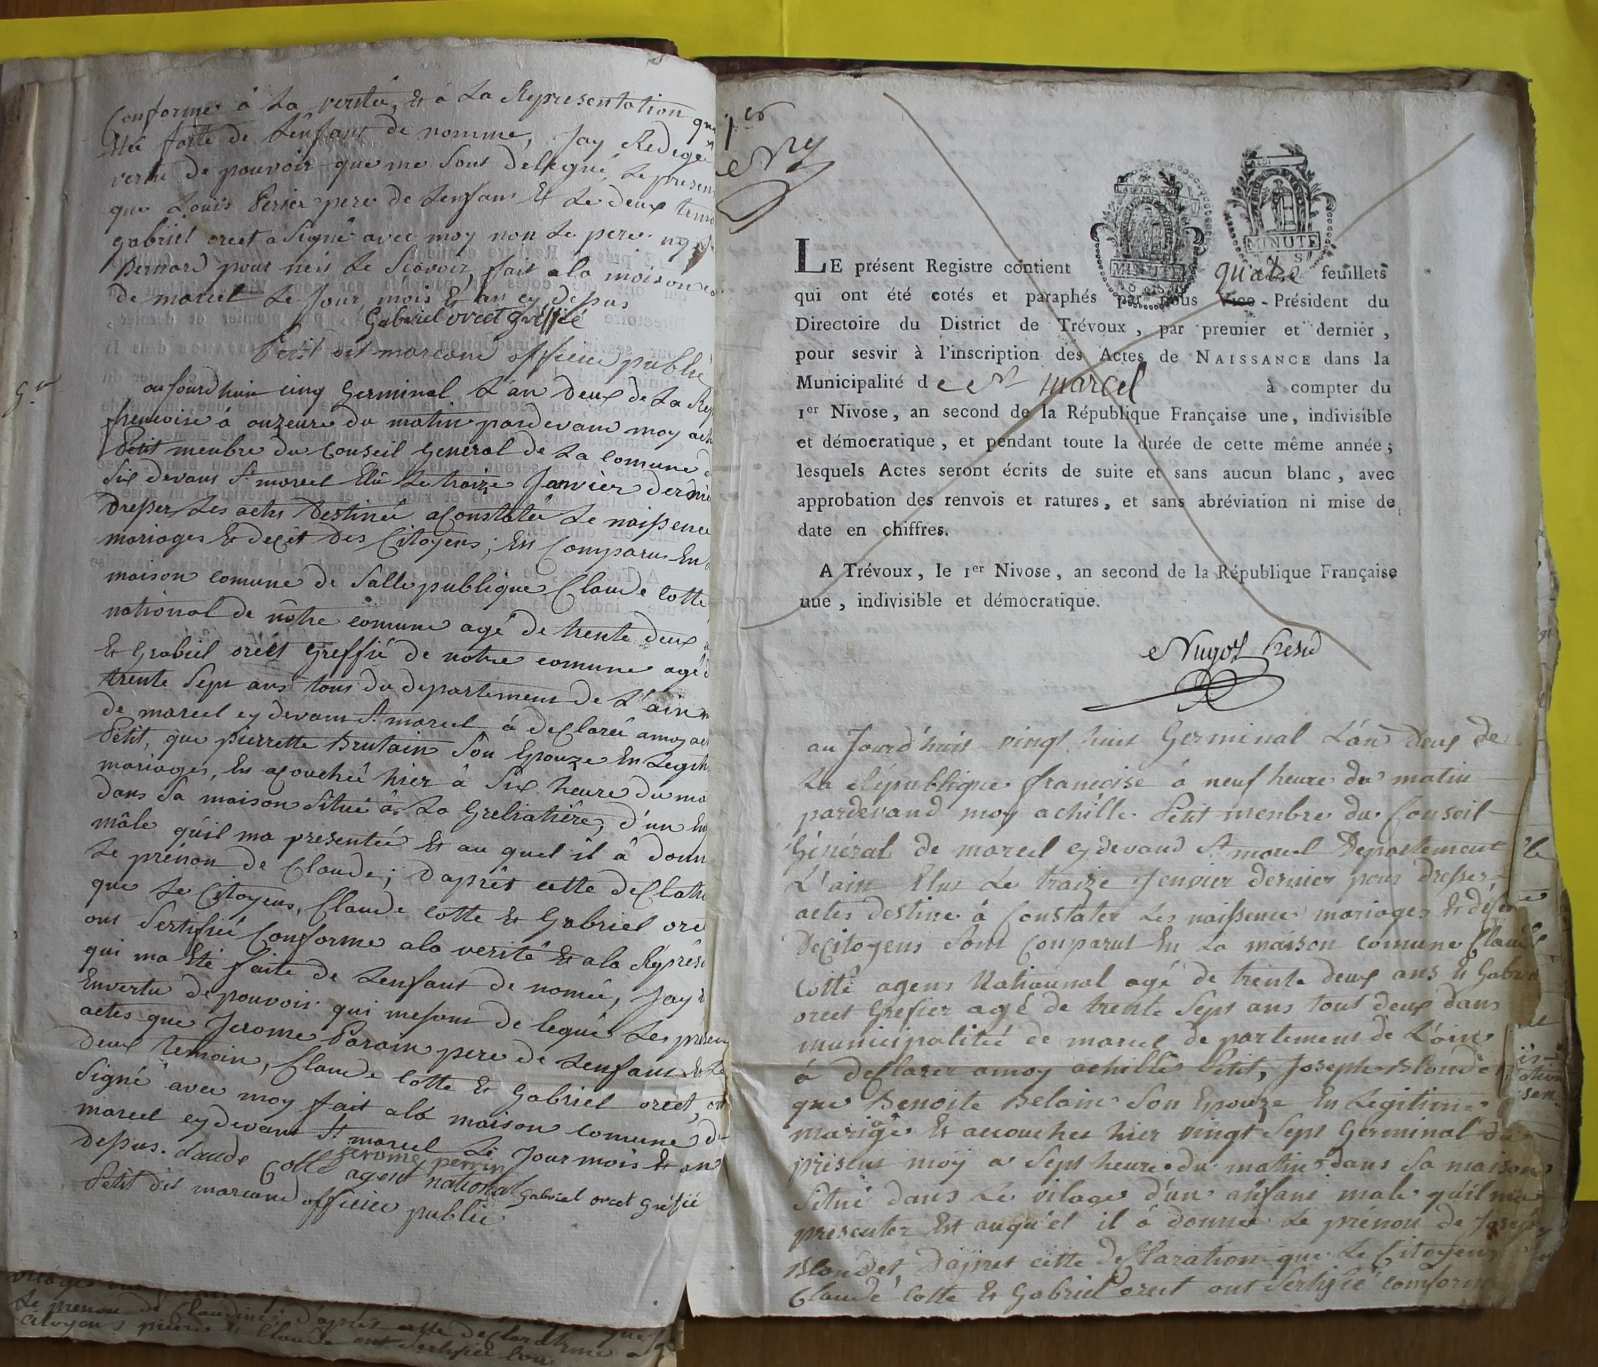 conforme à la verité, et à la Representation qui
été faite de L'enfant de nomme, Jay Redegé
vertu de pouvoir que me sont delegué, Le present
que Louis perier pere de Lenfant Et Le deux temo
gabriel orcet a signé avec moy non Le pere ny
Bernard pour neis Le Scavoir, fait a la maison
de marcel Le Jour mois Et an cy depus
Gabriel orcet Greffié
Petit dit marcane officier public
aujourdhuin cinq Germinal L'an deux de La Rep
francoise à onzeure du matin pardevant moy achi
Petit menbre du Conseil General de La Comune
six devant St marcel Elu Le traize Janvier dernie
Dresser Les actes Destiné a Constaté Le naissence
mariages Et decet Des Citoyens; En Comparus En
maison comune de Salle publique Claude Cotte
national de nôtre comune agé de trente deux
Et Gabriel orcet Greffié de notre comune agé
trente Sept ans tous du departement de L'ain
de marcel cy devant St marcel à deClaré amoy ac
Petit, que pierrette Brutain Son Epouze En Legit
mariages, En acouchée hier à Six heure du ma
dans Sa maison Situé à La Greliatiére, d'un En
mâle qu'il ma presentée Et au quel il à donn
Le prénon de Claude; D'après cette deClatio
que Le Citoyens, Claude Cotte Et Gabriel orc
ont Sertifiée Conforme a la verité Et a la Répres
qui ma été faite de Lenfant de nomée, Jay
Envertu de pouvoir qui mesont de legué Les presen
actes que Jerome Parain pere de Lenfant Et Le
deux temoin, Claude Cotte Et Gabriel orcet, on
Signé avec moy fait ala maison comune de
marcel cy devant St marcel Le Jour mois Et an
Depus. Claude Cotte jerome perrin
agent national Gabriel orcet Gréfié
Petit dit marcane officier public
1er
LE présent Registre contient quatre feuillets
qui ont été cotés et paraphés par nous Vice-Président du
Directoire du District de Trévoux, par premier et dernier,
pour sesvir à l'inscription des Actes de NAISSANCE dans la
Municipalité de St marcel à compter du
1er Nivose, an second de la République Française une, indivisible
et démocratique, et pendant toute la durée de cette même année;
lesquels Actes seront écrits de suite et sans aucun blanc, avec
approbation des renvois et ratures, et sans abréviation ni mise de
date en chiffres.
A Trévoux, le 1er Nivose, an second de la République Française
une, indivisible et démocratique.
MINUTE
MINUTE
au Jourd'huis vingt huit Germinal L'an deux de
La République françoise à neuf heure du matin
pardevand moy achille Petit menbre du Conseil
Général de marcel cy devand St marcel Departement
L'ain Elus Le traize Jenvier dernier pour dresser
actes destine à Constater Les naissence mariages Et décé
De Citoyens Sont Conparut En La maison comune Claude
Cotte agens Nationnal agé de trente deux ans Et Gabriel
orcet Grefier agé de trente Sept ans tout deux dans
municipalitée de marcel departement de L'ain
à deClarer amoy achille Petit, Joseph Blondet
que Benoite Belain Son Epouze En Legitime
mariage Et accouchee hier vingt Sept Germinal du
présent moy a Sept heure du matin dans Sa maison
Situé dans Le vilage d'un anfant male qu'il ma
presenter Est auquel il à donner Le prénon de Joseph
Blondet D'apret cette deClaration que Le Citoyens
Claude Cotte Et Gabriel orcet ont Sertifié conforme